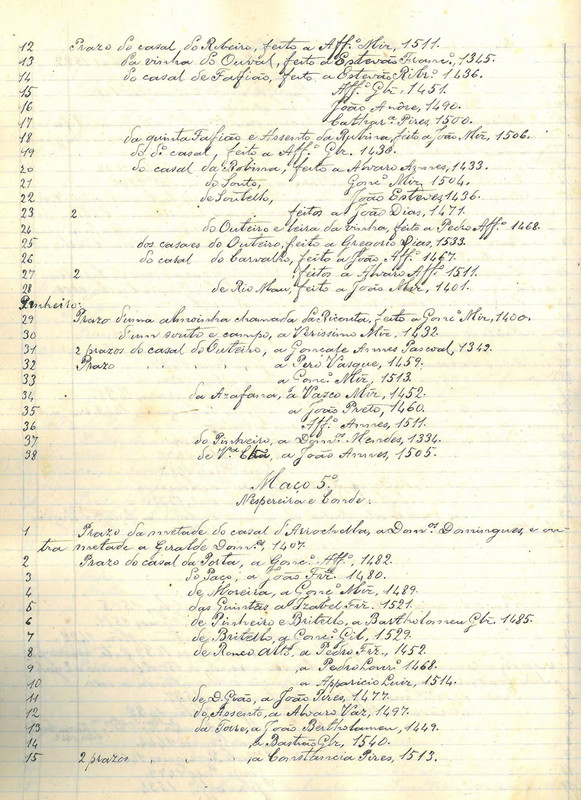 12 Prazo do casal do Ribeiro, feito a Aff.º Miz, 1511.
13 da vinha do Ouval, feito a Estevão Franc.º, 1345.
14 do casal de Faffião, feito a Estevão Rib.º 1436.
15 Aff.º Glz, 1451.
16 João Andre, 1490.
17 Cathar.ª Pires, 1500.
18 da quinta Faffião e Assento da Rubina, feito a João Miz, 1506.
19 do d.º casal, feito a Aff.º Glz. 1438.
20 do casal da Robina, feito a Alvaro Annes, 1433.
21 do Souto, Gonç.º Miz, 1504.
22 de Soutello, João Esteves 1436.
23 2 feitos a João Dias, 1471.
24 do Outeiro e leira da vinha, feito a Pedro Aff.º 1468.
25 dos casaes do Outeiro, feito a Gregorio Dias, 1533.
26 do casal do Carvalho, feito a João Aff.º 1467.
27 2 feitos a Alvaro Aff.º 1511.
28 de Rio Mau, feito a João Miz, 1401.
Pinheiro:
29 Prazo d'uma almoinha chamada da Ricosta, feito a Gonç.º Miz, 1400.
30 d'um souto e campo, a Verissimo Miz, 1432.
31 2 prazos do casal do Outeiro, a Gonçalo Annes Pascoal, 1349.
32 Prazo a Pero Vasque, 1459.
33 a Gonç.º Miz, 1513.
34 da Azafana, a Vasco Miz, 1452.
35 a João Preto, 1460.
36 Aff.º Annes, 1511.
37 do Pinheiro, a Dom.ºs Mendes, 1334.
38 de V.ª a João Annes, 1505.
Maço 5.º
Nespereira e Conde:
1 Prazo da metade do casal d'Arrochella, a Dom.ºs Domingues, e ou-
tra metade a Giralde Dom.ºs, 1407.
2 Prazo do casal da Porta, a Gonç.º Aff.º, 1482.
3 do Paço, a João Frz. 1480.
4 de Moreira, a Gonç.º Miz, 1489.
5 das Quintãs a Izabel Frz. 1521.
6 de Pinheiro e Britello, a Bartholomeu Glz. 1485.
7 de Britello, a Gonç.º Gil, 1529.
8 de Ronco Alto, a Pedro Frz., 1452.
9 , a Pedro Lour.º 1468.
10 a Apparicio Luiz, 1514.
11 de D. Grão, a João Pires, 1477.
12 do Assento, a Alvaro Vaz, 1497.
13 da Torre, a João Bertholameu, 1449.
14 , a Bastião Glz, 1540.
15 2 prazos , a Constancia Pires, 1513.